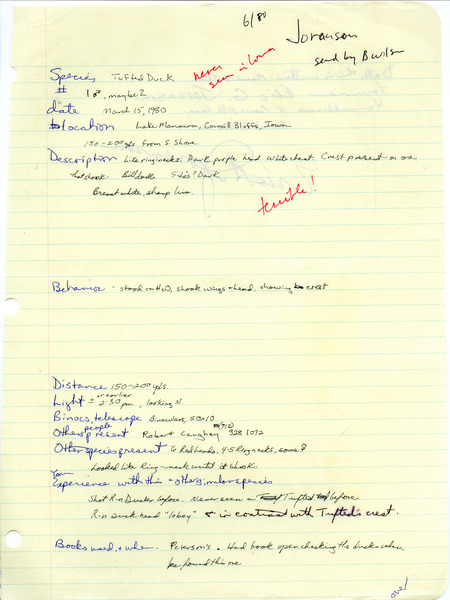 6/80
Joranson
send by B wilson
never
seen in Iowa
Species Tufted Duck
# 1 ♂, maybe 2
date March 15, 1980
Location Lake Manawa, Council Bluffs, Iowa
150-200 yds from S. Shore
Description Like ringnecks. Dark purple head white chest. Crest present on one
that shook Bill dark Sides? Dark
Breast white, sharp line.
terrible!
Behavior - stood on H2O, shook wings + head, showing crest
Distance 150-200 yds.
Light ± or earlier 2:30 pm, looking N.
Binocs, telescope Binoculars, 50x10
Others people present Robert Caughey (712) 328 1072
Other species present 6 Redheads, 4-5 Ringnecks, some ♀
Looked like Ring-neck until it shook.
Experience with this + other similar species
Shot R-n Ducks before. Never seen a Tufted before
R-n Duck head "lobey" & in contrast with Tufted's crest.
Books used, + when. Peterson's. Had book open checking the ducks when
he found this one
over